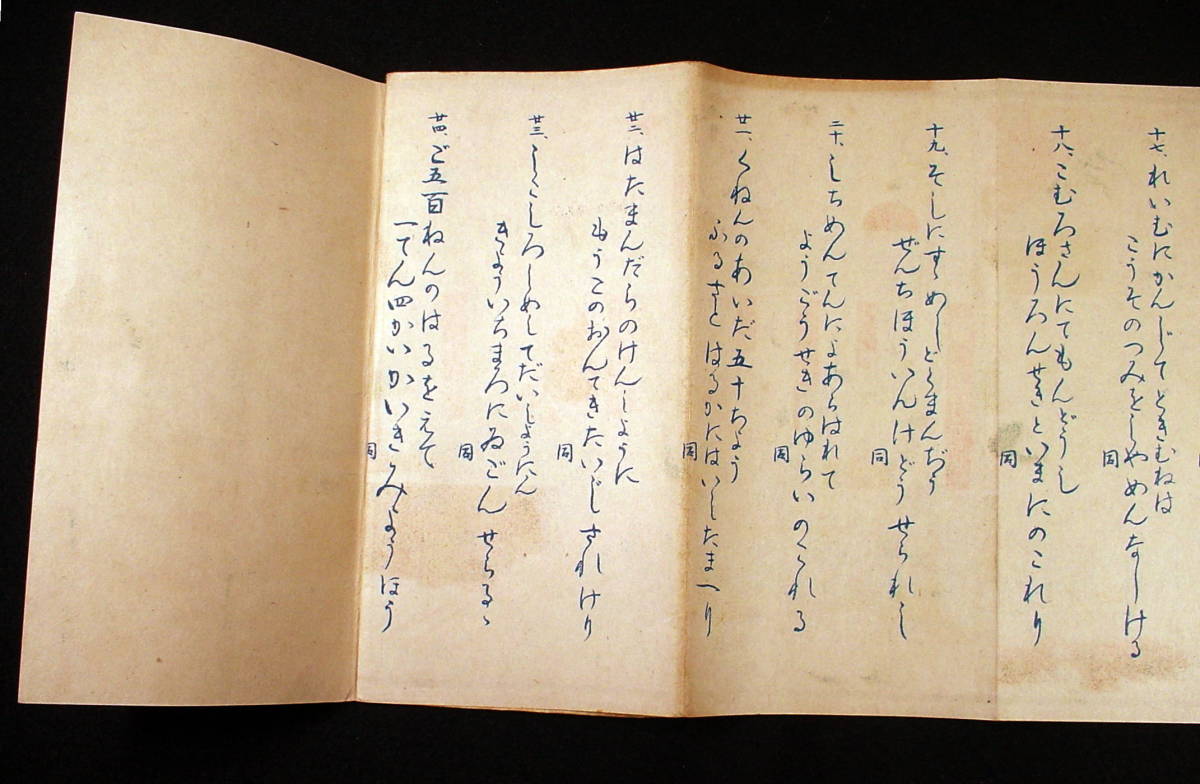 十七、れいむにかんじてときむねは
こうそのつみをしやめんなしける
同
十八、こむろさんにてもんどうし
ほうろんせきといまにのこれり
同
十九、そしにすゝめしどくまんぢう
ぜんちほういんけどうせられし
同
二十、しちめんてんによあらはれて
ようごうせきのゆらいのこれる
同
廿一、くねんのあいだ五十ちよう
ふるさとはるかにはいしたまへり
同
廿二、はたまんだらのけんしように
もうこのおんてきたいじされけり
同
廿三、しゝしろしめしてだいしようにん
きよういちまろにゐごんせらるゝ
同
廿四、ご五百ねんのはるをえて
一てん四かいかいきみようほう
同